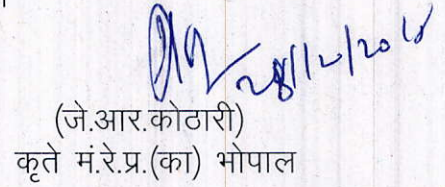 28/12/2018
(जे.आर.कोठारी)
कृते मं.रे.प्र.(का) भोपाल